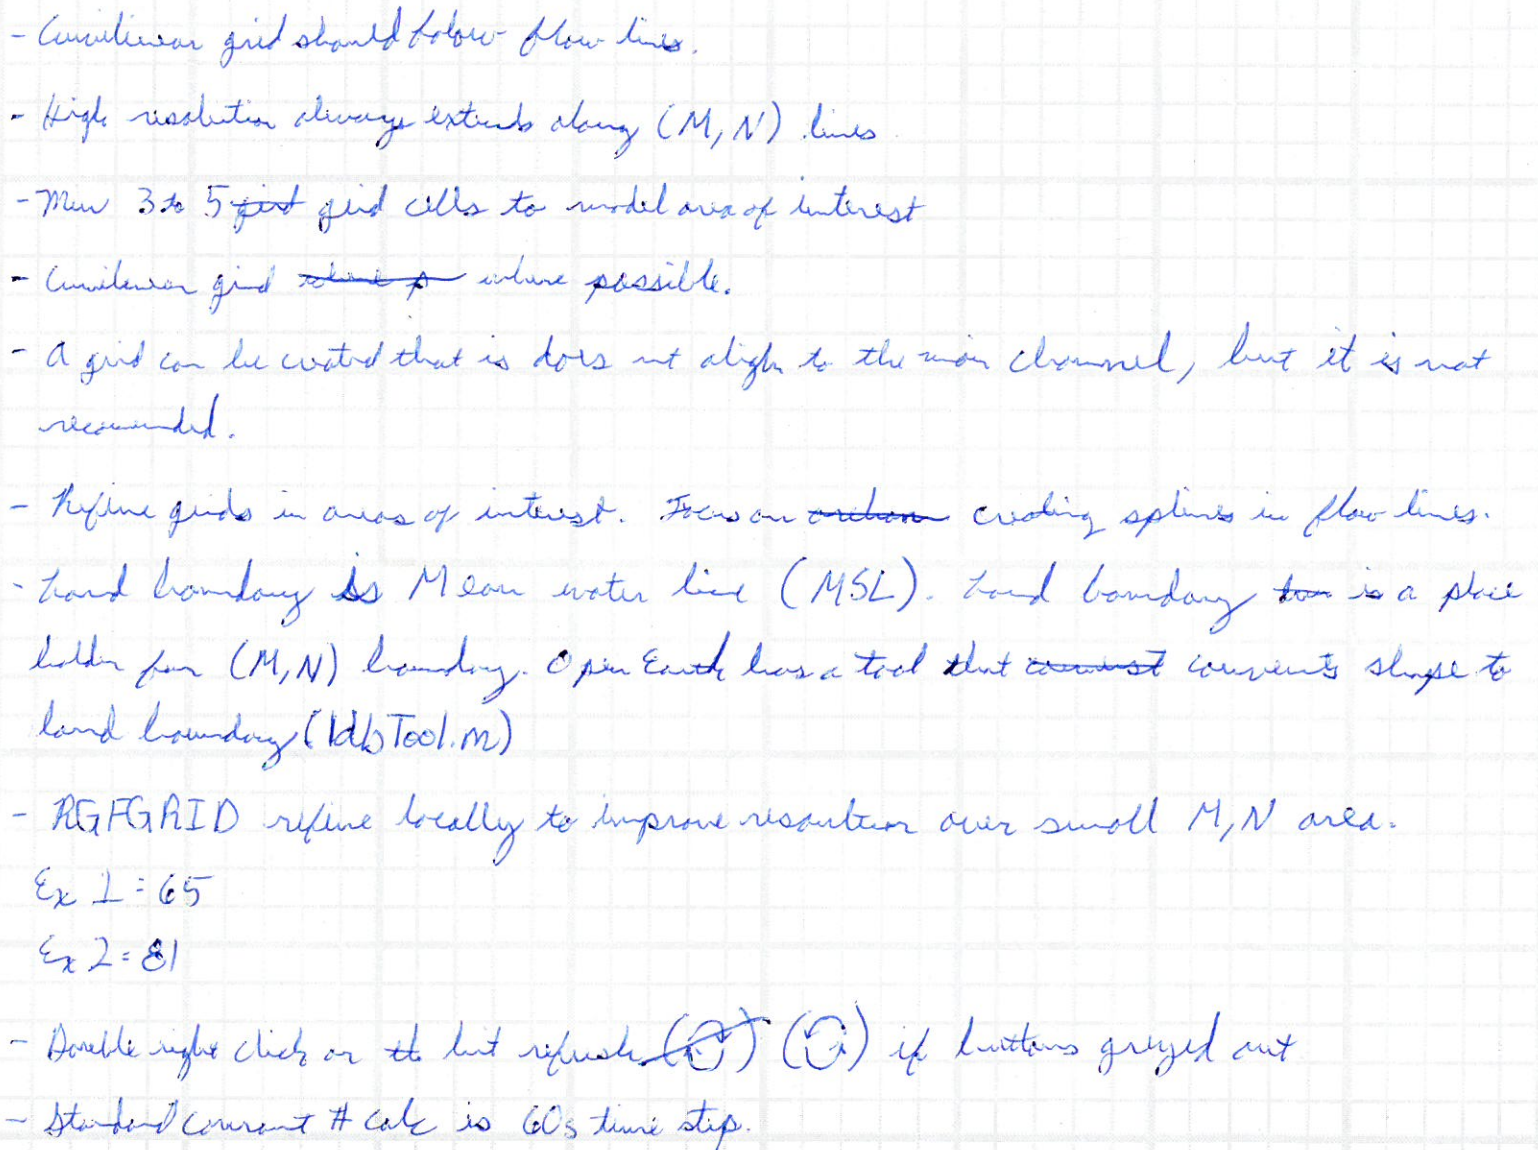 - Curvilinear grid should follow flow lines.
- High resolution always extends along (M, N) lines
- Min 3 to 5 grid cells to model area of interest
- Curvilinear grid where possible.
- A grid can be created that is does not align to the main channel, but it is not
recommended.
- Refine grids in areas of interest. Focus on creating splines in flow lines.
- Land boundary is Mean water line (MSL). Land boundary is a place
holder for (M,N) boundary. Open Earth has a tool that converts shape to
land boundary (ldbTool.m)
- RGFGRID refine locally to improve resolution over small M,N area.
Ex 1 = 65
Ex 2 = 81
- Double right click or hit refresh ( ) if buttons greyed out
- Standard courant # calc is 60s time step.